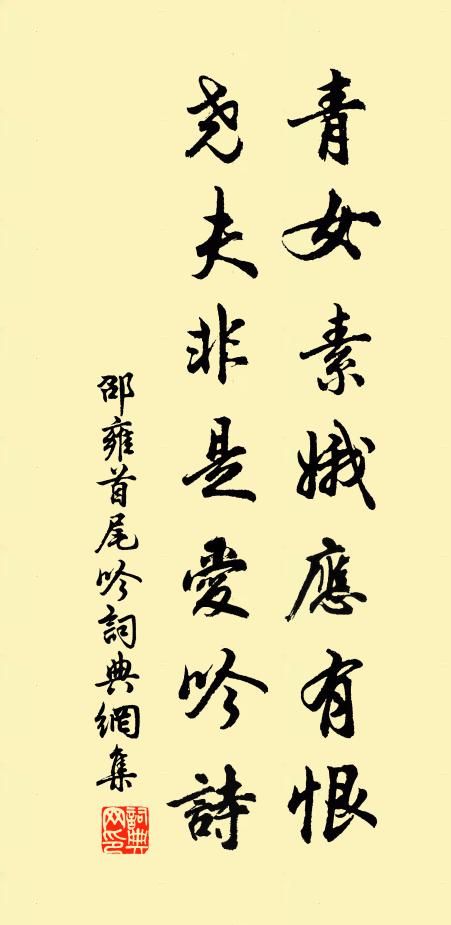 青女素娥應有恨
尧夫非是愛吟詩
邵雍首尾吟詞典網集
詞典网印